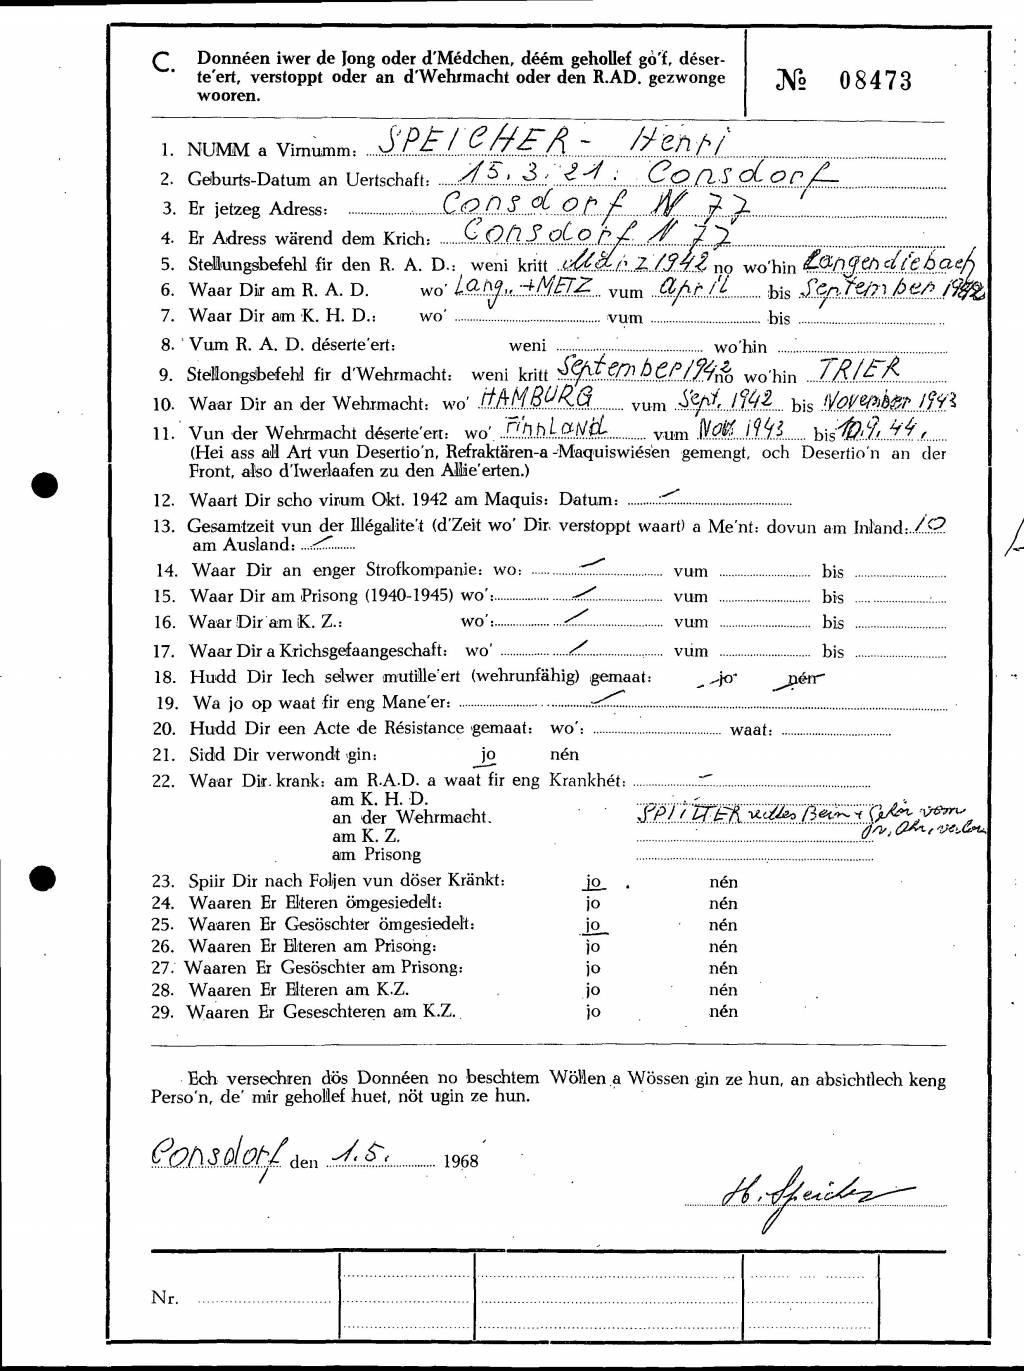 C. Donnéen iwer de Jong oder d'Médchen, déém gehollef go'f, déser-
te'ert, verstoppt oder an d'Wehrmacht oder den R.AD. gezwonge
wooren.
№ 08473
1. NUMM a Virnumm: SPEICHER - Henri
2. Geburts-Datum an Uertschaft: 15.3.21. Consdorf
3. Er jetzeg Adress: Consdorf N 77
4. Er Adress wärend dem Krich: Consdorf N 77
5. Stellungsbefehl fir den R. A. D.: weni kritt März 1942 no wo'hin Langendiebach
6. Waar Dir am R. A. D. wo' Lang.. + METZ vum April bis September 1942
7. Waar Dir am K. H. D.: wo' vum bis
8. Vum R. A. D. déserte'ert: weni wo'hin
9. Stellongsbefehl fir d'Wehrmacht: weni kritt September 1942 no wo'hin TRIER
10. Waar Dir an der Wehrmacht: wo' HAMBURG vum Sept. 1942 bis November 1943
11. Vun der Wehrmacht déserte'ert: wo' FinnLAND vum Nov. 1943 bis 10.9.44.
(Hei ass all Art vun Desertio'n, Refraktären-a-Maquiswiésen gemengt, och Desertio'n an der
Front, also d'Iwerlaafen zu den Allie'erten.)
12. Waart Dir scho virum Okt. 1942 am Maquis: Datum: /
13. Gesamtzeit vun der Illégalite't (d'Zeit wo' Dir verstoppt waart) a Me'nt: dovun am Inland: 10
am Ausland: /
14. Waar Dir an enger Strofkompanie: wo: / vum bis
15. Waar Dir am Prisong (1940-1945) wo': / vum bis
16. Waar Dir am K. Z.: wo': / vum bis
17. Waar Dir a Krichsgefaangeschaft: wo' / vum bis
18. Hudd Dir Iech selwer mutille'ert (wehrunfähig) gemaat: jo nén
19. Wa jo op waat fir eng Mane'er: /
20. Hudd Dir een Acte de Résistance gemaat: wo': waat:
21. Sidd Dir verwondt gin: jo nén
22. Waar Dir krank: am R.A.D. a waat fir eng Krankhét: -
am K. H. D.
an der Wehrmacht. SPLITTER rechtes Bein + Gehör vom
am K. Z. gr. Ohr. verlor
am Prisong
23. Spiir Dir nach Foljen vun döser Kränkt: jo nén
24. Waaren Er Elteren ömgesiedelt: jo nén
25. Waaren Er Gesöschter ömgesiedelt: jo nén
26. Waaren Er Elteren am Prisong: jo nén
27. Waaren Er Gesöschter am Prisong: jo nén
28. Waaren Er Elteren am K.Z. jo nén
29. Waaren Er Geseschteren am K.Z. jo nén
Ech versechren dös Donnéen no beschtem Wöllen a Wössen gin ze hun, an absichtlech keng
Perso'n, de' mir gehollef huet, nöt ugin ze hun.
Consdorf den 1.5. 1968
H. Speicher
Nr.